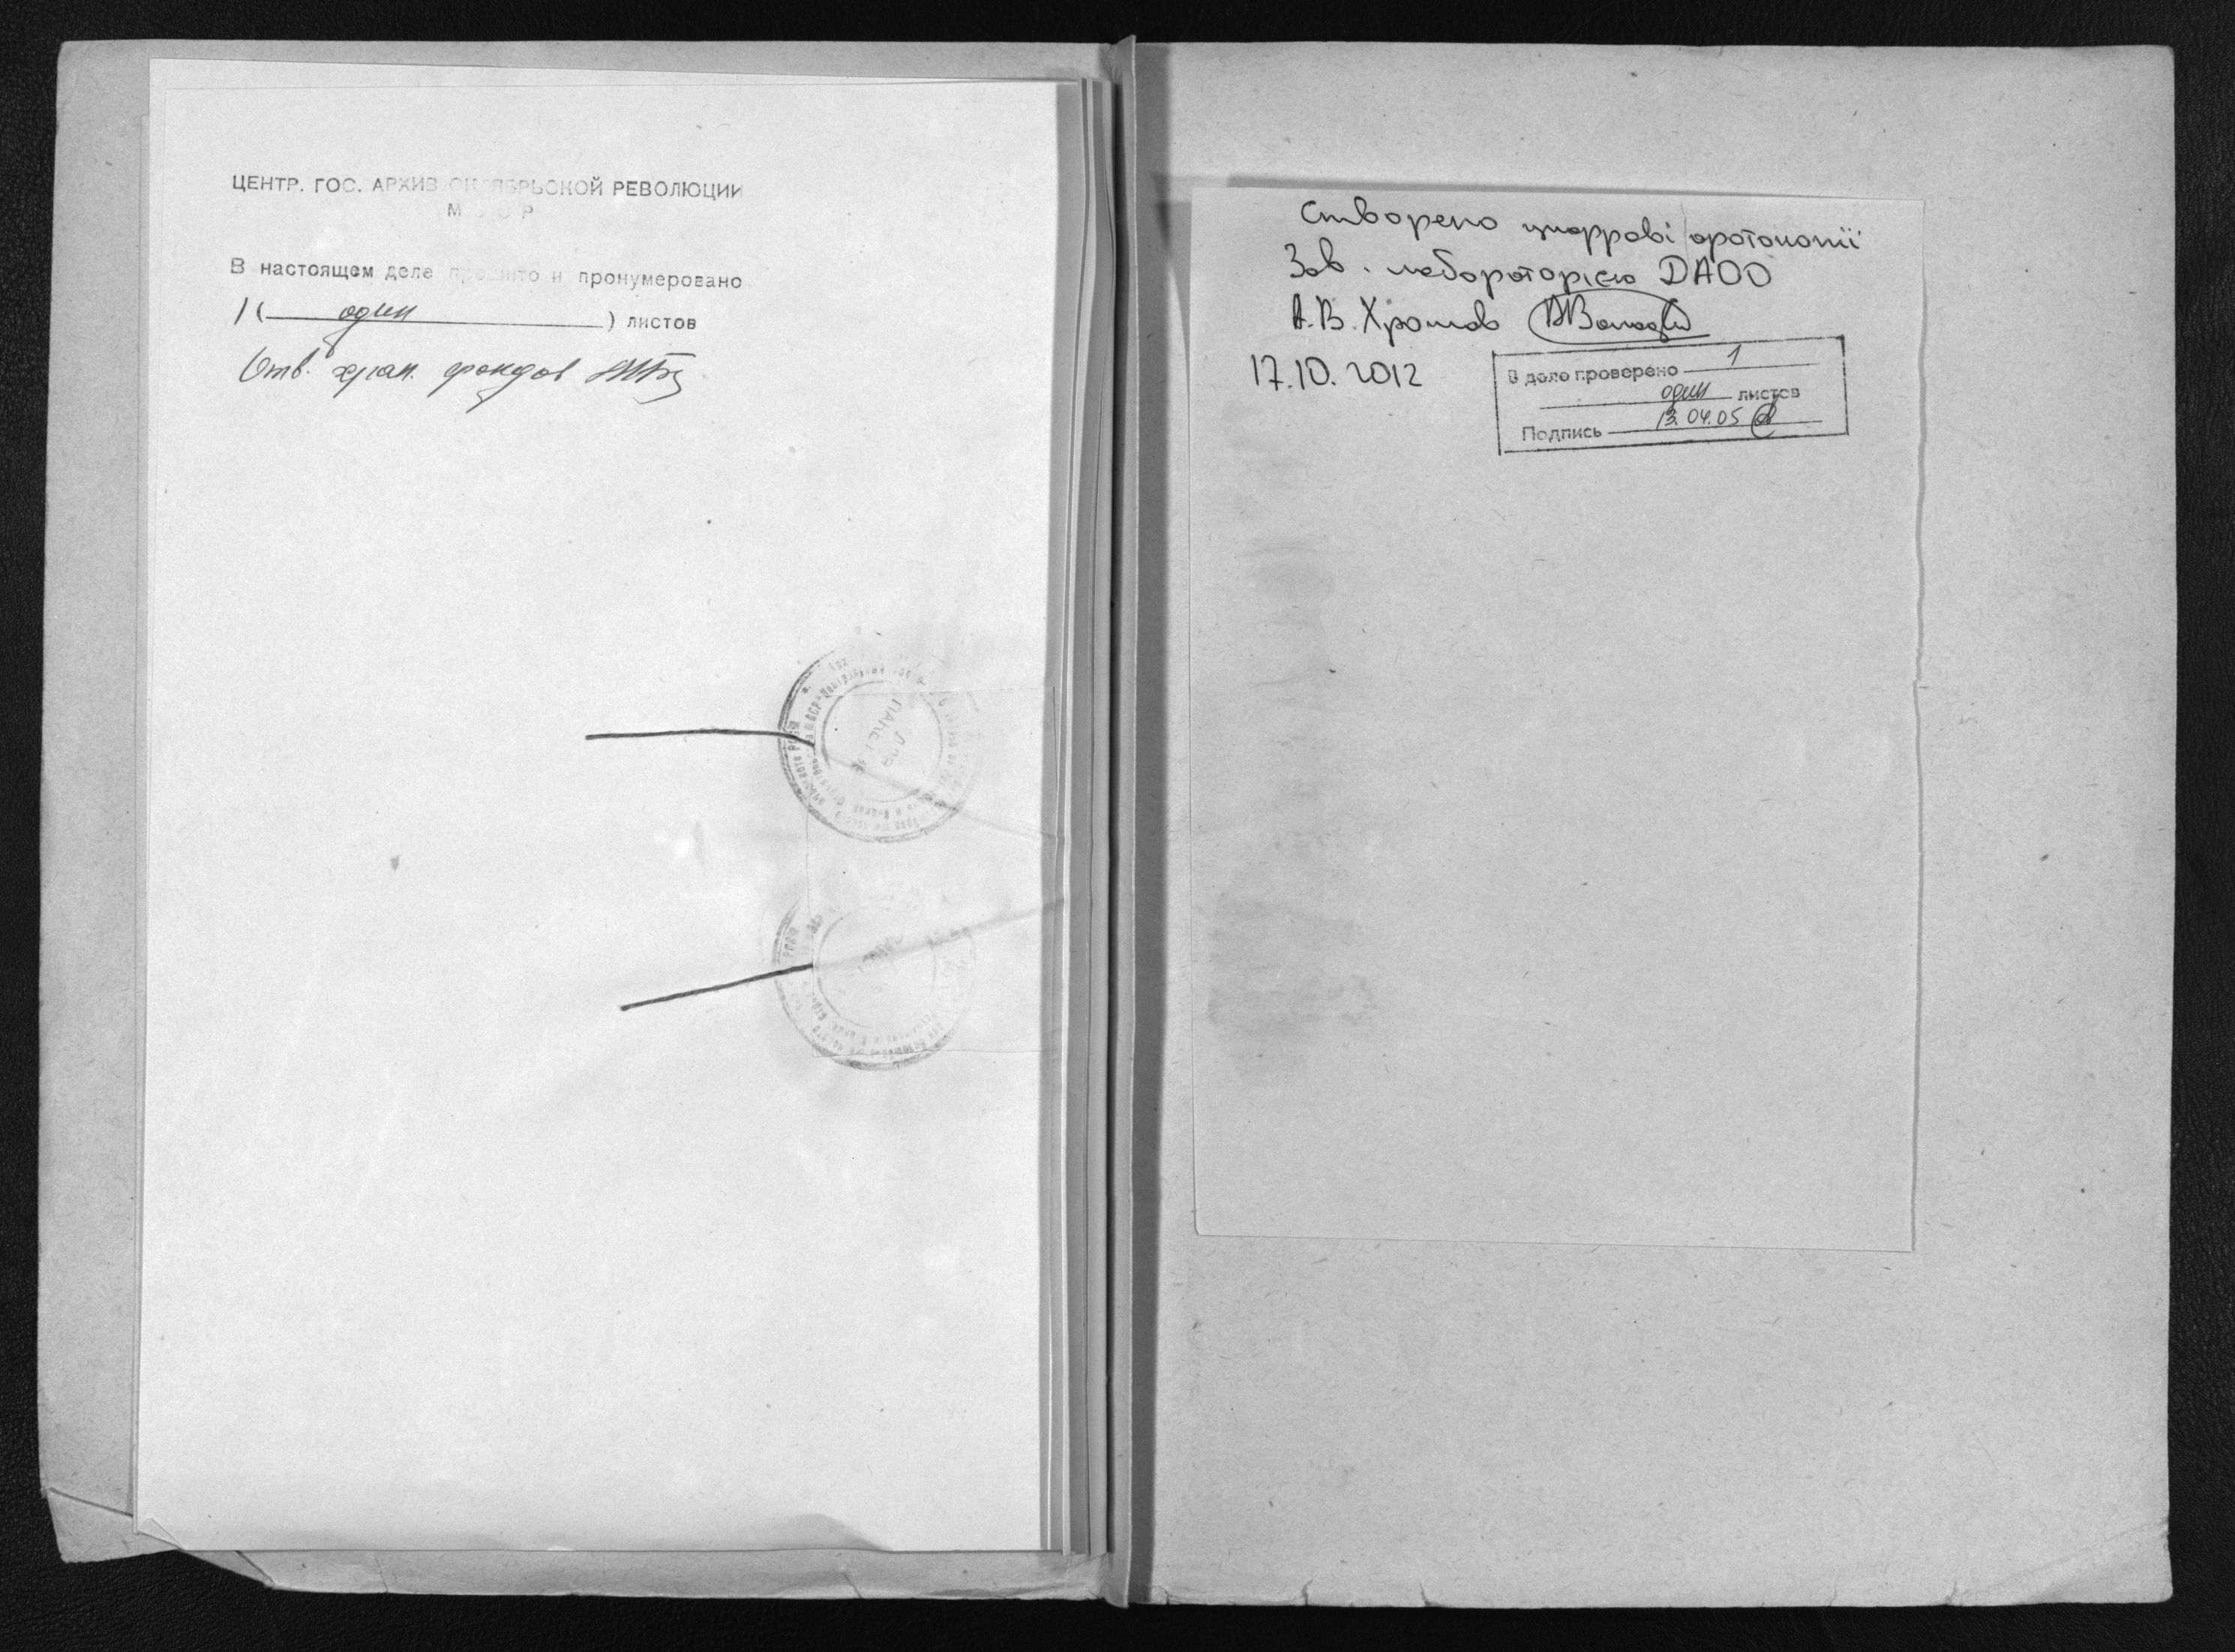 ЦЕНТР. ГОС. АРХИВ ОКТЯБРЬСКОЙ РЕВОЛЮЦИИ
В настоящем деле прошито и пронумеровано
1 ( один ) листов
Отв. хран. фондов
Створено цифрові фотокопії
Зав. лабораторією ДАОО
А.В. Хромов
17.10.2012
В деле проверено 1
один листов
13.04.05
Подпись